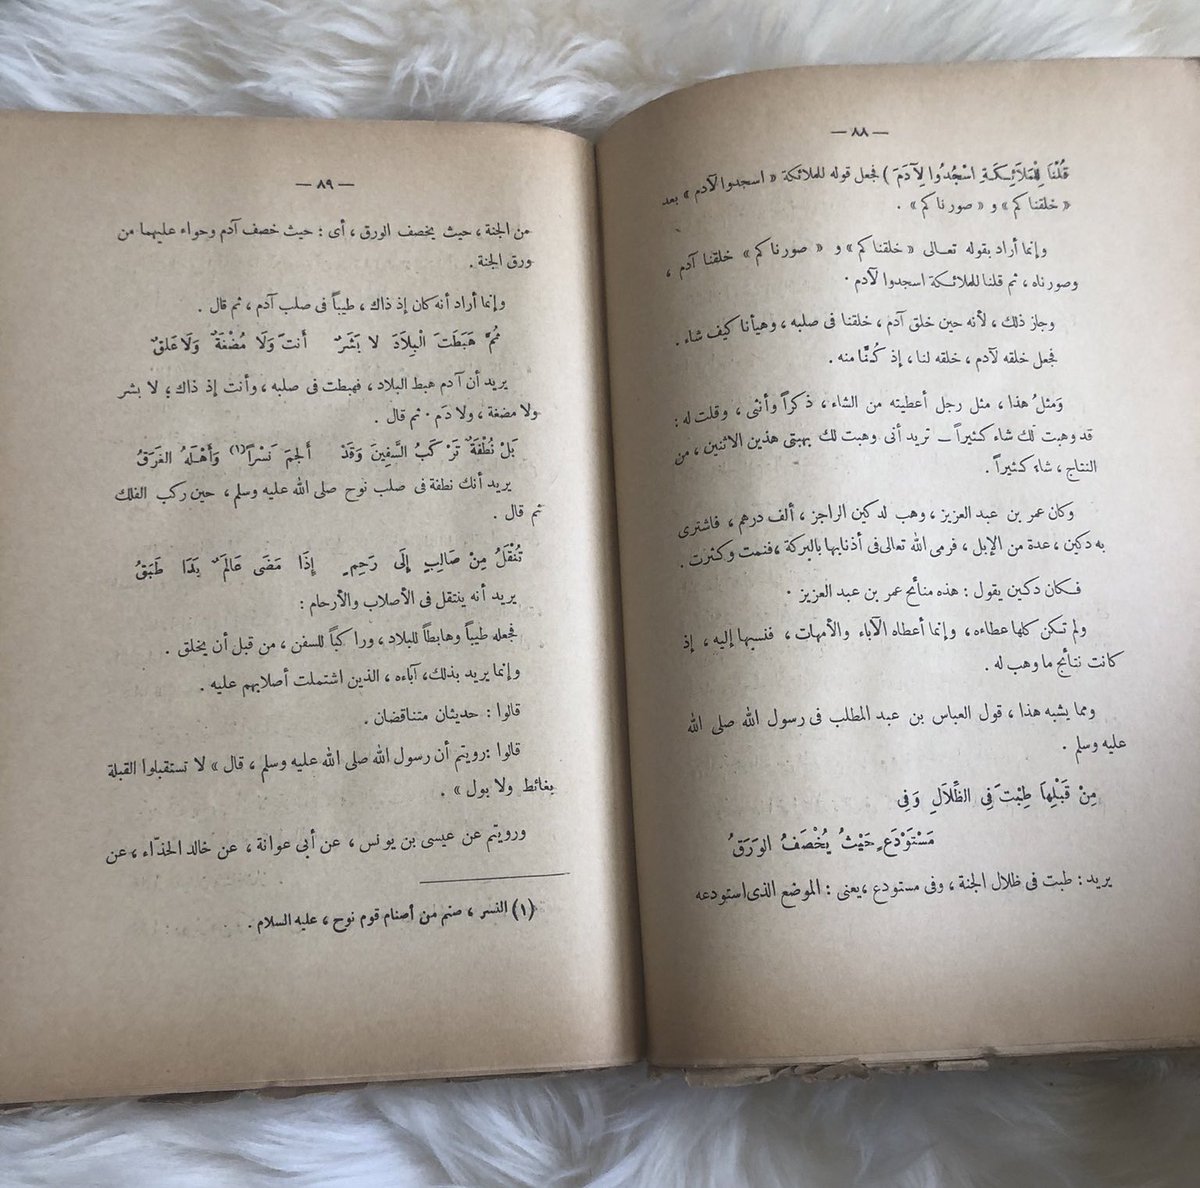 — ٨٨ —
قُلْنَا لِلْمَلَائِكَةِ اسْجُدُوا لِآدَمَ ) فجعل قوله للملائكة « اسجدوا لآدم » بعد
« خلقناكم » و « صورناكم » .
وإنما أراد بقوله تعالى « خلقناكم » و « صورناكم » خلقنا آدم ،
وصورناه ، ثم قلنا للملائكة اسجدوا لآدم .
وجاز ذلك ، لأنه حين خلق آدم ، خلقنا فى صلبه ، وهيأنا كيف شاء .
فجعل خلقه لآدم ، خلقه لنا ، إذ كُنَّا منه .
وَمثلُ هذا ، مثل رجل أعطيته من الشاء ، ذكراً وأنثى ، وقلت له :
قد وهبت لك شاء كثيراً — تريد أنى وهبت لك بهبتى هذين الاثنين ، من
النتاج ، شاء كثيراً .
وكان عمر بن عبد العزيز ، وهب لدكين الراجز ، ألف درهم ، فاشترى
به دكين ، عدة من الإبل ، فرمى الله تعالى فى أذنابها بالبركة ، فنمت وكثرت .
فكان دكين يقول : هذه منائح عمر بن عبد العزيز .
ولم تكن كلها عطاءه ، وإنما أعطاه الآباء والأمهات ، فنسبها إليه ، إذ
كانت نتائج ما وهب له .
ومما يشبه هذا ، قول العباس بن عبد المطلب فى رسول الله صلى الله
عليه وسلم .
مِنْ قَبْلِهَا طِبْتَ فِى الظِّلَالِ وَفِى
مَسْتَوْدَعٍ حَيْثُ يُخْصَفُ الوَرَقُ
يريد : طبت فى ظلال الجنة ، وفى مستودع ، يعنى : الموضع الذى استودعه
— ٨٩ —
من الجنة ، حيث يخصف الورق ، أى : حيث خصف آدم وحواء عليهما من
ورق الجنة .
وإنما أراد أنه كان إذ ذاك ، طيباً فى صلب آدم ، ثم قال .
ثُمَّ هَبَطَتَ الْبِلَادَ لا بَشَرٌ أنتَ وَلَا مُضْغَةٌ وَلَا عَلَقٌ
يريد أن آدم هبط البلاد ، فهبطت فى صلبه ، وأنت إذ ذاك ، لا بشر
ولا مضغة ، ولا دَم . ثم قال .
بَلْ نُطْفَةٌ تَرْكَبُ السَّفِينَ وَقَدْ أَلجَمَ نَسْراً (١) وَأَهْلَهُ الغَرَقُ
يريد أنك نطفة فى صلب نوح صلى الله عليه وسلم ، حين ركب الفلك
ثم قال .
تُنْقَلُ مِنْ صَالِبٍ إِلَى رَحِمٍ إِذَا مَضَى عَالَمٌ بَدَا طَبَقُ
يريد أنه ينتقل فى الأصلاب والأرحام :
فجعله طيباً وهابطاً للبلاد ، وراكباً للسفن ، من قبل أن يخلق .
وإنما يريد بذلك ، آباءه ، الذين اشتملت أصلابهم عليه .
قالوا : حديثان متناقضان .
قالوا : رويتم أن رسول الله صلى الله عليه وسلم ، قال « لا تستقبلوا القبلة
بغائط ولا بول » .
ورويتم عن عيسى بن يونس ، عن أبى عوانة ، عن خالد الحذّاء ، عن
(١) النسر ، صنم من أصنام قوم نوح ، عليه السلام .